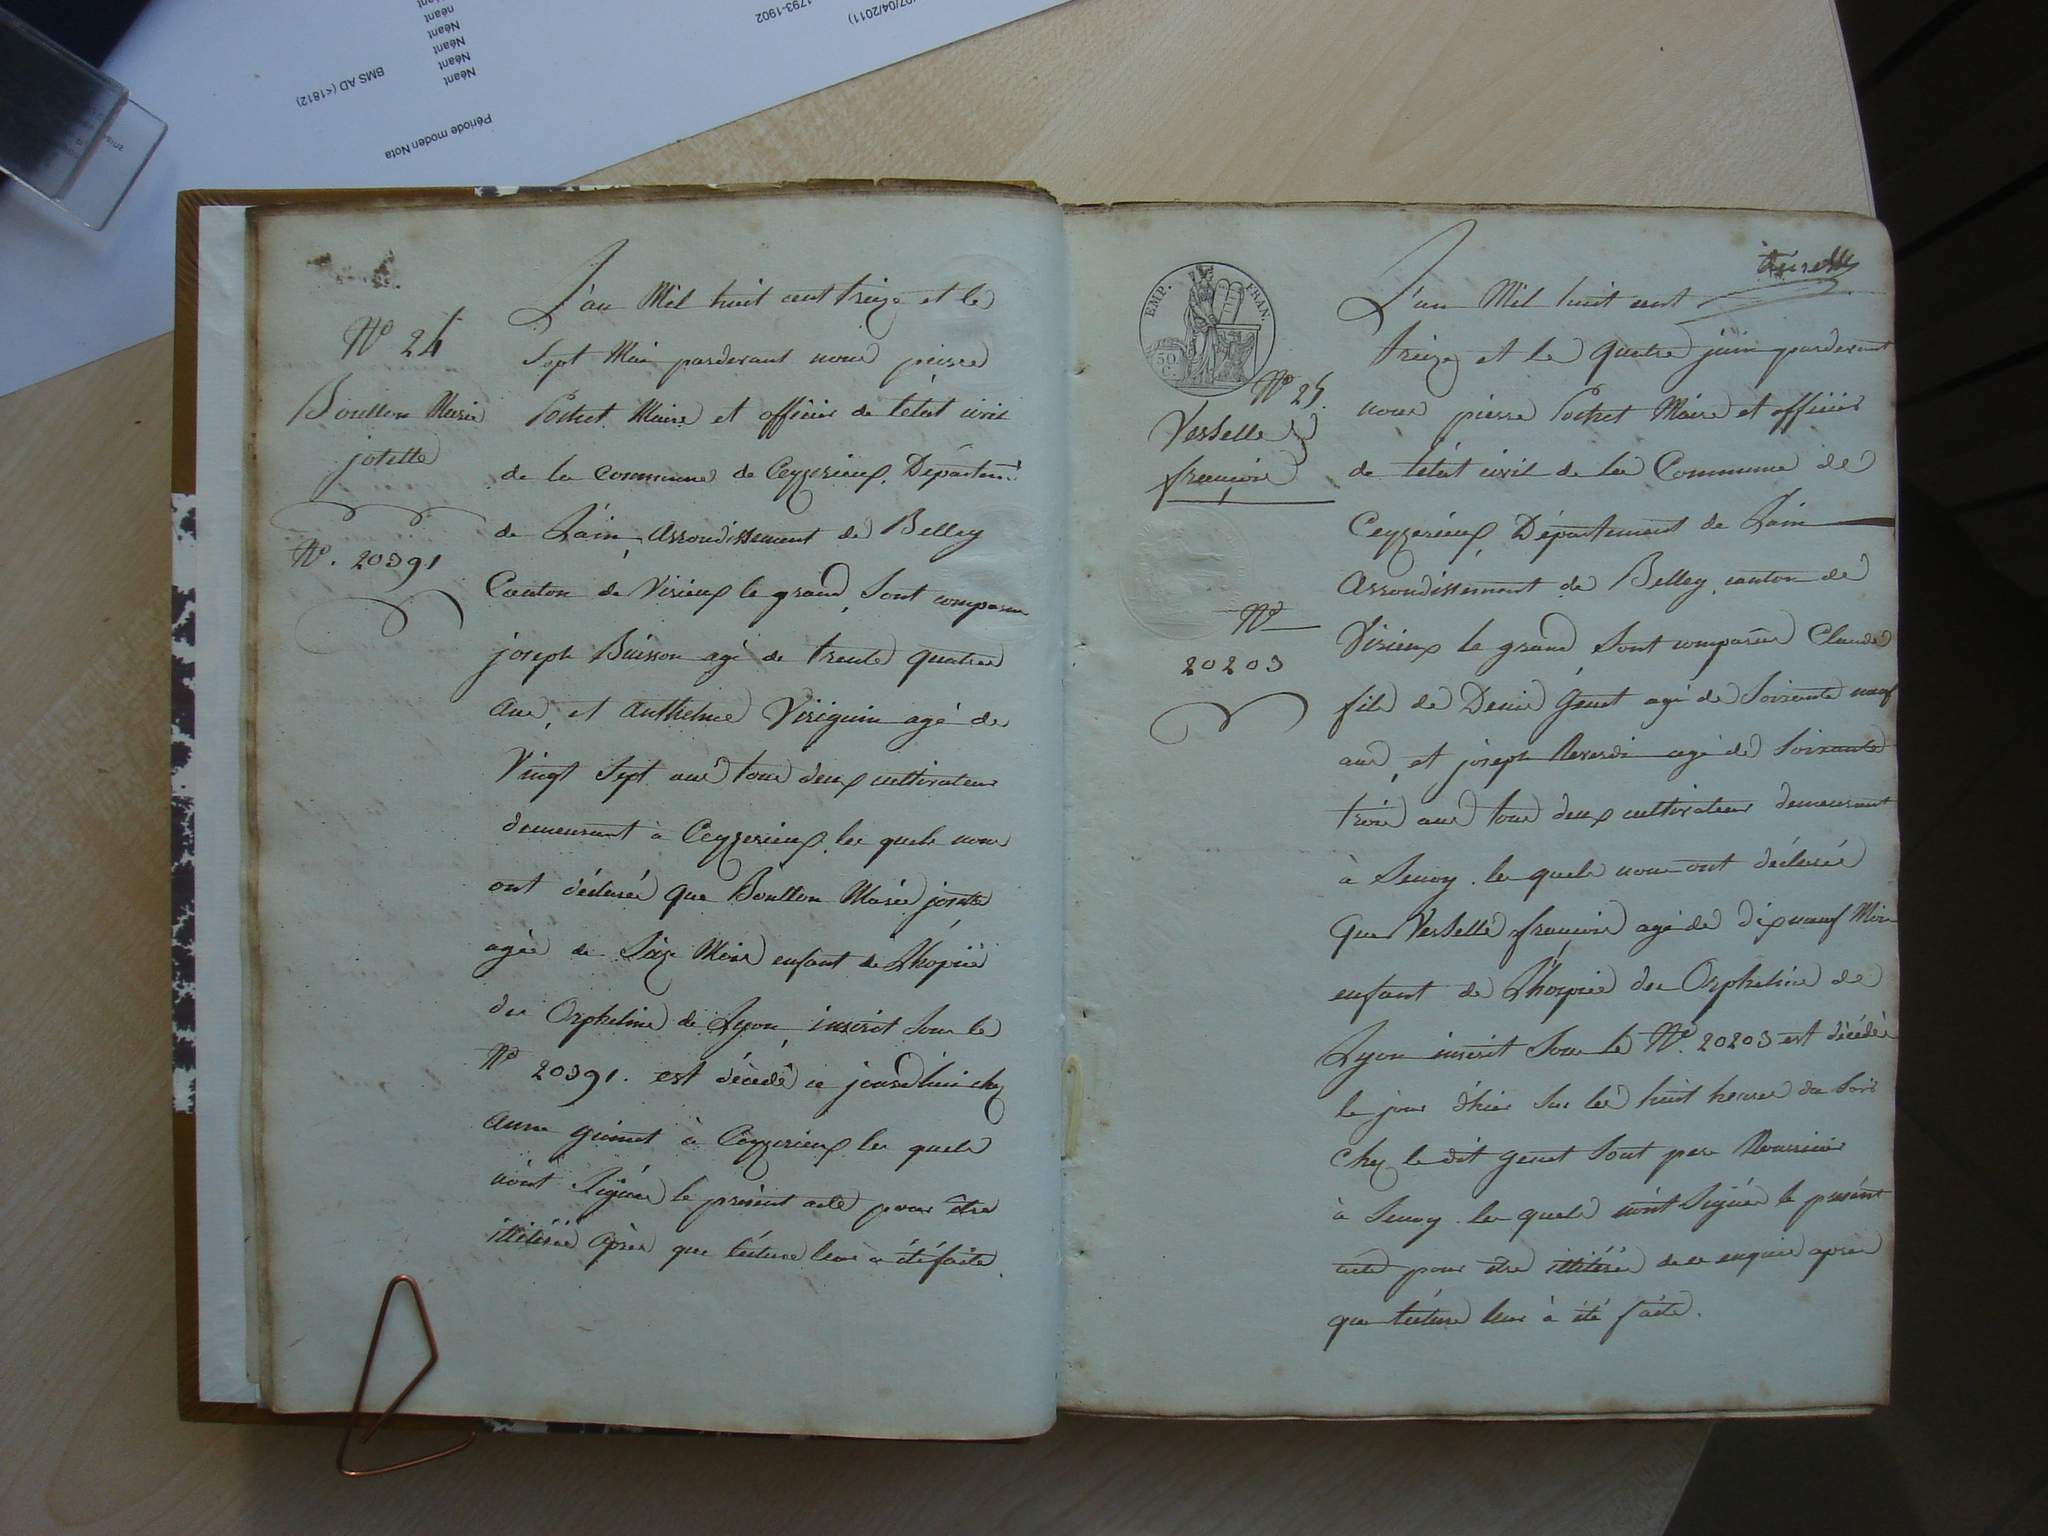 Néant
Néant
Néant
Néant
néant
BMS AD (<1812)
Période moden Nota
1793-1902
07/04/2011)
N° 24
Boullon Marie
josette
N°. 20391
L'an Mil huit cent treize et le
Sept Mai pardevant nous pierre
Pochet Maire et officier de l'état civil
de la commune de Ceyzerieux, Départem.t
de L'ain, Arrondissement de Belley
Canton de Virieux le grand, Sont comparu
joseph Buisson agé de trente quatre
ans, et anthelme Viriguin agé de
Vingt Sept ans tous deux cultivateur
demeurant à Ceyzerieux, les quels nous
ont déclaré que Boullon Marie josette
agée de Seize Mois enfant de L'hopice
des Orphelins de Lyon, inscrit Sous le
N° 20391. est décédé ce jourd'hui chez
anne guinet à Ceyzerieux les quels
n'ont Signés le présent acte pour être
illitéré après que lecture leur a été faite.
EMP. FRAN.
50
C.
N° 25.
Vesselle
françois
N°
20203
L'an Mil huit cent
treize et le quatre juin pardevant
nous pierre Pochet Maire et officier
de l'état civil de la Commune de
Ceyzerieux, Département de L'ain
Arrondissement de Belley, canton de
Virieux le grand Sont comparus Claude
fils de Denis Genet agé de Soixante neuf
ans, et joseph agé de Soixante
trois ans tous deux cultivateur demeurant
à . les quels nous ont déclarée
Que Vesselle françois agé de dixneuf Mois
enfant de L'hospice des Orphelins de
Lyon inscrit Sous le N°. 20203 est décédé
le jour d'hier sur les huit heures du Soir
chez le dit genet Sont pere Nourricier
à . les quels n'ont Signés le présent
acte pour être illitéré de ce enquis après
que lecture leur à été faite.